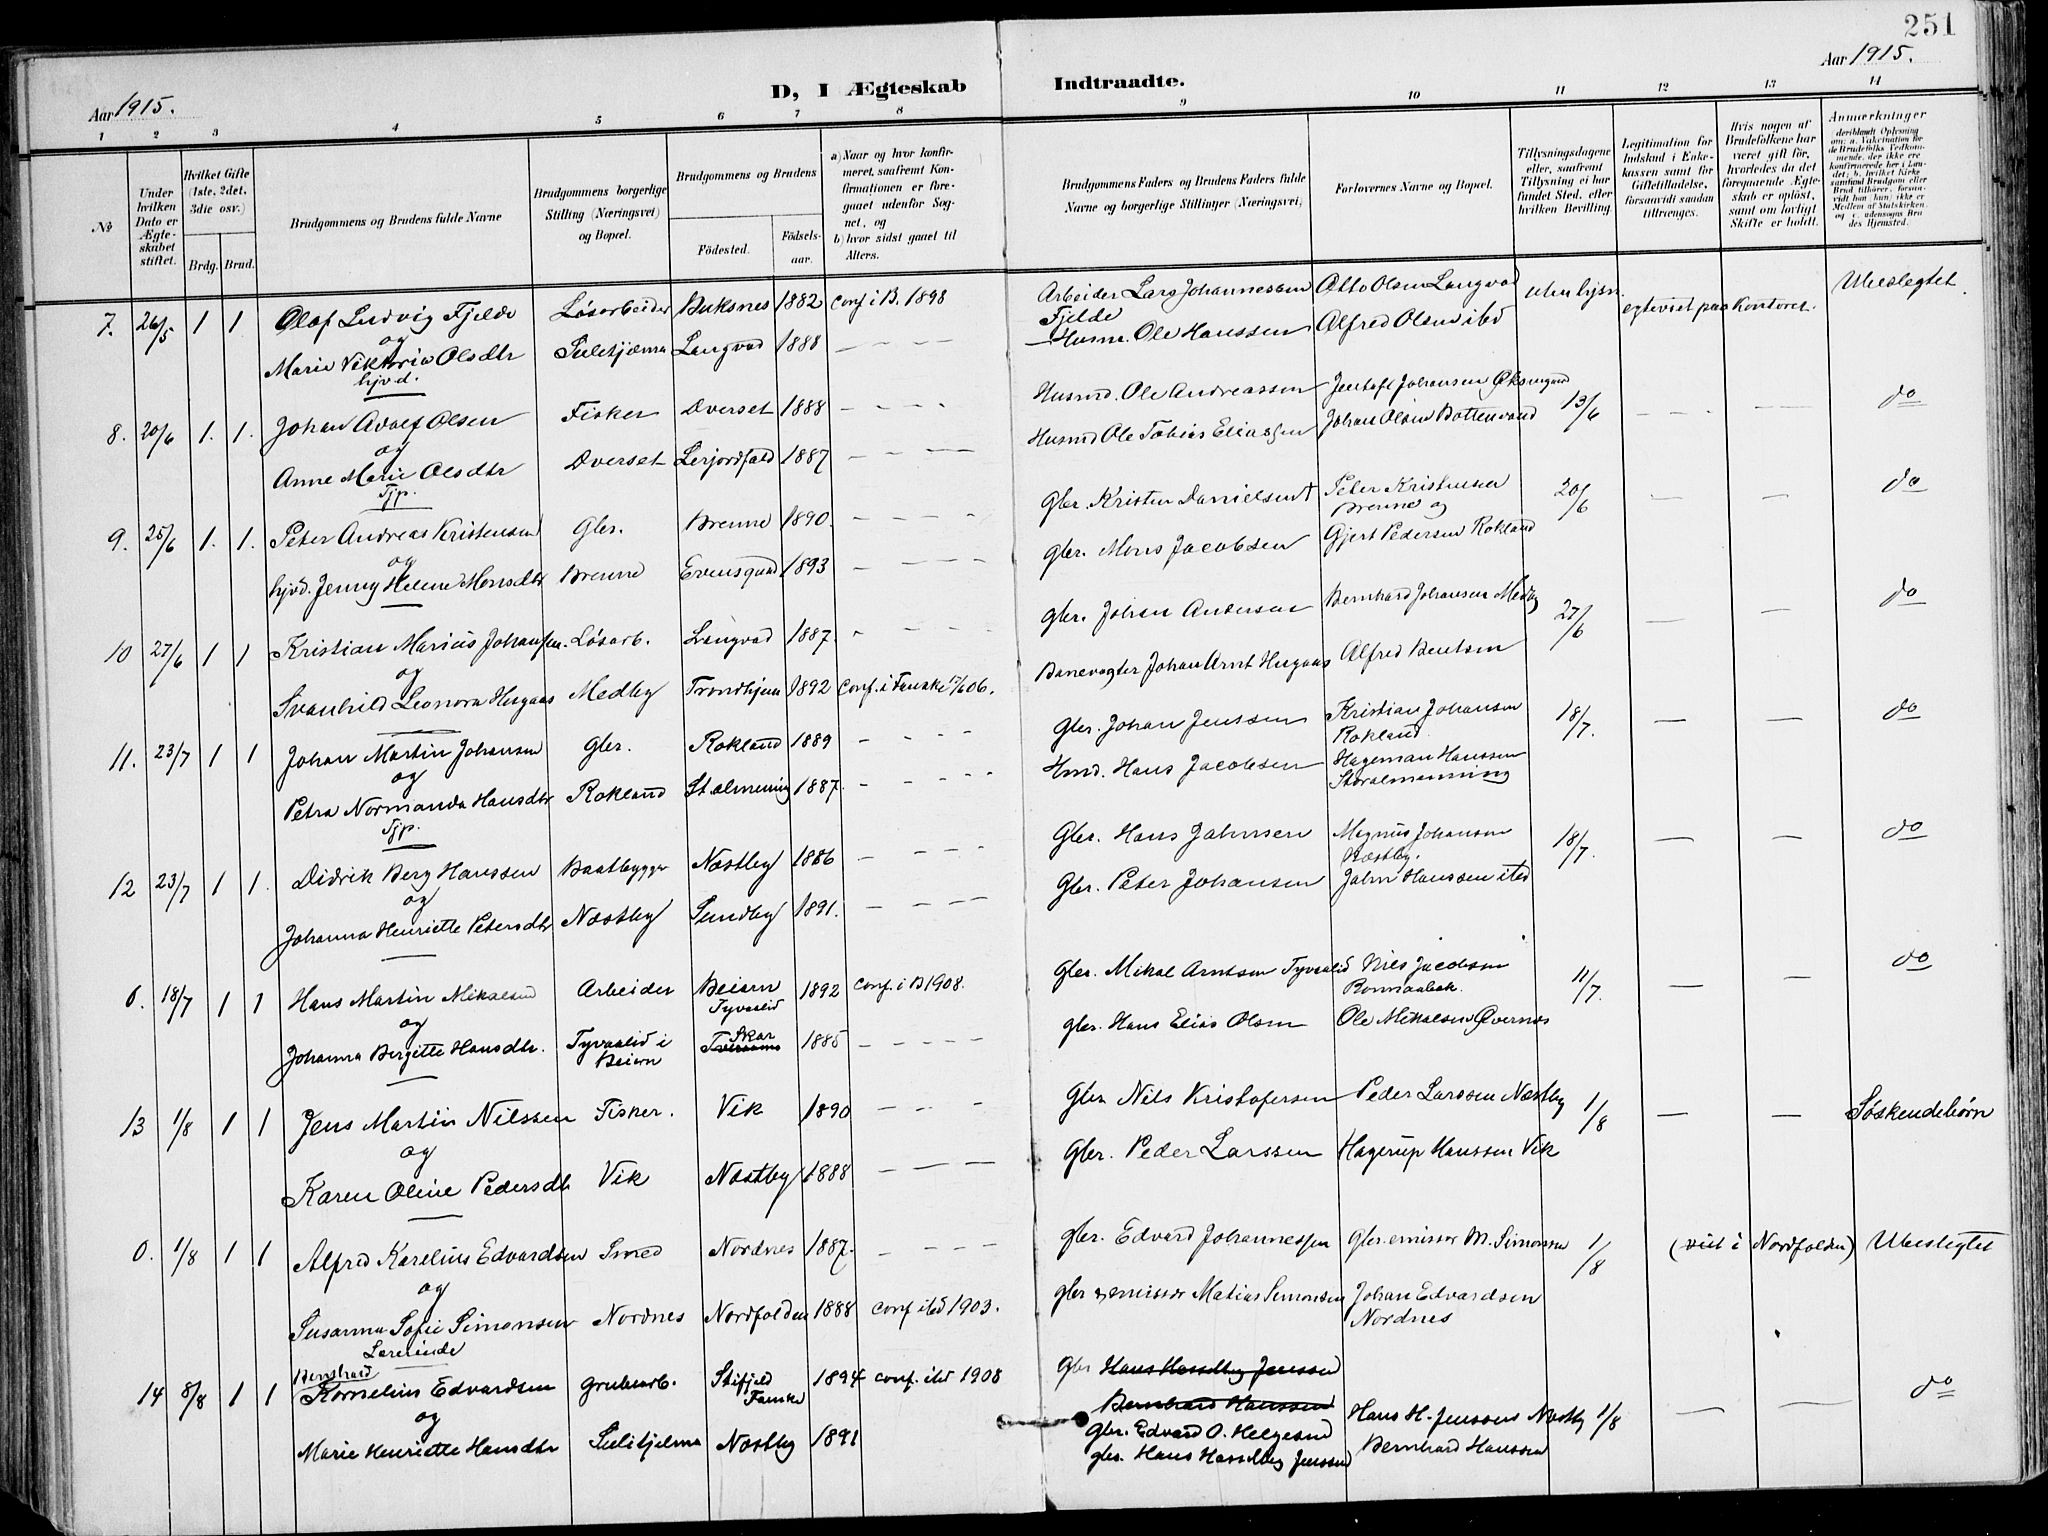 251
Aar 1915.
D, I Ægteskab Indtraadte.
Aar 1915.
1 2 3 4 5 6 7 8 9 10 11 12 13 14
No
Under hvilken Dato er Ægteskabet stiftet.
Hvilket Gifte (1ste, 2det, 3die osv.)
Brdg. Brud.
Brudgommens og Brudens fulde Navne
Brudgommens borgerlige Stilling (Næringsvei) og Bopæl.
Brudgommens og Brudens
Födested.
Födselsaar.
a) Naar og hvor konfirmeret, saafremt Konfirmationen er foregaaet udenfor Sognet, og
b) hvor sidst gaaet til Alters.
Brudgommens Faders og Brudens Faders fulde Navne og borgerlige Stillinger (Næringsvei)
Forlovernes Navne og Bopæl.
Tillysningsdagene eller, saafremt Tillysning ei har fundet Sted, efter hvilken Bevilling.
Legitimation for Indskud i Enkekassen samt for Giftetilladelse, forsaavidt saadan tiltrænges.
Hvis nogen af Brudefolkene har været gift för, hvorledes da det foregaaende Ægteskab er oplöst, samt om lovligt Skifte er holdt.
Anmærkninger
deriblandt Oplysning om: a. Vakcination for de Brudefolks Vedkommende, der ikke ere konfirmerede her i Landet; b. hvilket Kirkesamfund Brudgom eller Brud tilhörer, forsaavidt han (hun) ikke er Medlem af Statskirken, og c. udensogns Brudes Hjemsted.
7. 26/5 1 1 Olaf Ludvig Fjelde Løsarbeider Buksnes 1882 conf i B. 1898 Arbeider Lars Johannessen Fjelde Otto Olsen Langvad egteviet paa kontoret. Ubeslegtet.
og
Marie Viktoria Olsdtr Sulitjelma Langvad 1888 Husm. Ole Hanssen Alfred Olsen ibd
hjvd.
8. 20/6 1. 1. Johan Adolf Olsen Fisker Dverset 1888 Husmd. Ole Andreassen 13/6 do
og
Anne Marie Olsdtr Dverset Lerjordfald 1887 Husmd Ole Tobias Eliassen Johan Olsen Bottenvand
Tjp.
9. 25/6 1. 1. Peter Andreas Kristensen Gbr. Brenne 1890. Gbr. Kristen Danielsen † Peter Kristensen Brenne og 20/6 do
og
hjvd. Jenny Helene Monsdtr Brenne Evensgaard 1893 gbr. Mons Jacobsen Gjert Pedersen Rokland
10 27/6 1 1 Kristian Marius Johansen. Løsarb. Langvad 1887. gbr. Johan Andersen Bernhard Johansen Medby 27/6 do
og
Svanhild Leonora Husgaas Medby Trondhjem 1892 conf. i Fauske 17/6 06. Banevogter Johan Arnt Husgaas Alfred Bentsen
11. 23/7 1 1 Johan Martin Johansen Gbr. Rokland 1889 Gbr. Johan Jenssen Kristian Johansen Rokland. 18/7. do
og
Petra Normanda Hansdtr Rokland St.almening 1887. Hmd. Hans Jacobsen Hageman Hanssen Storalmenning
Tjp.
12 23/7 1 1. Didrik Berg Hanssen Baatbygger Næstby 1886 Gbr. Hans Jahnsen Magnus Johansen Næstby. 18/7. do
og
Johanna Henriette Petersdtr Næstby Sundby 1891. Gbr. Peter Johansen Jahn Hanssen ibd
6. 18/7 1 1 Hans Martin Mikalsen Arbeider Beiern Tyvaalid 1892 conf. i B 1908. Gbr. Mikal Arntsen Tyvaalid Nils Jacobsen 11/7. do
og
Johanna Bergitte Hansdtr. Tyvaalid i Beiern Skar 1885 gbr. Hans Elias Olsen Ole Mikalsen Øvernes
13 1/8 1 1 Jens Martin Nilssen Fisker. Vik 1890 Gbr Nils Kristofersen Peder Larssen Næstby 1/8 Søskendebørn
og
Karen Oline Pedersdtr Vik Næstby 1888 Gbr. Peder Larssen Hagerup Hanssen Vik
0. 1/8 1 1 Alfred Karelius Edvardsen Smed Nordnes 1887. gbr. Edvard Johannessen Gbr. emissær M. Simonsen 1/8 (viet i Nordfolden) Ubeslegtet
og
Susanna Sofie Simonsen Nordnes Nordfolden 1888 conf ibd 1903. gbr & emissær Matias Simonsen Johan Edvardsen Nordnes
Lærerinde
Bernhard
14 8/8 1 1 Kornelius Edvardsen Grubearb. Stifjeld Fauske 1894 conf. ibd 1908 gbr Hans Hasselby Jenssen
og Bernhard Hanssen
gbr. Edvard O. Helgesen Hans H. Jenssens Næstby 1/8 do
Marie Henriette Hansdtr Sulitjelma Næstby 1891 gbr. Hans Hasselby Jenssen Bernhard Hanssen